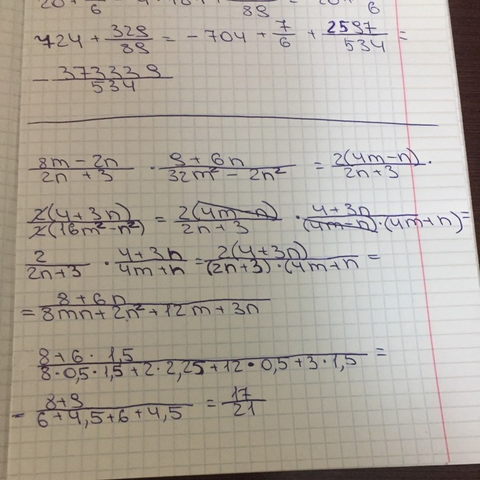 724 + 329/89 = - 704 + 7/6 + 2597/534 =
- 373339/534
8m - 2n / 2n + 3 · 8 + 6n / 32m² - 2n² = 2(4m-n) / 2n+3 ·
2(4+3n) / 2(16m²-n²) = 2(4m-n) / 2n+3 · 4+3n / (4m-n)·(4m+n) =
2 / 2n+3 · 4+3n / 4m+n = 2(4+3n) / (2n+3)·(4m+n =
= 8+6n / 8mn+2n²+12m+3n
8+6·1,5 / 8·0,5·1,5+2·2,25+12·0,5+3·1,5 =
- 8+9 / 6+4,5+6+4,5 = 17/21